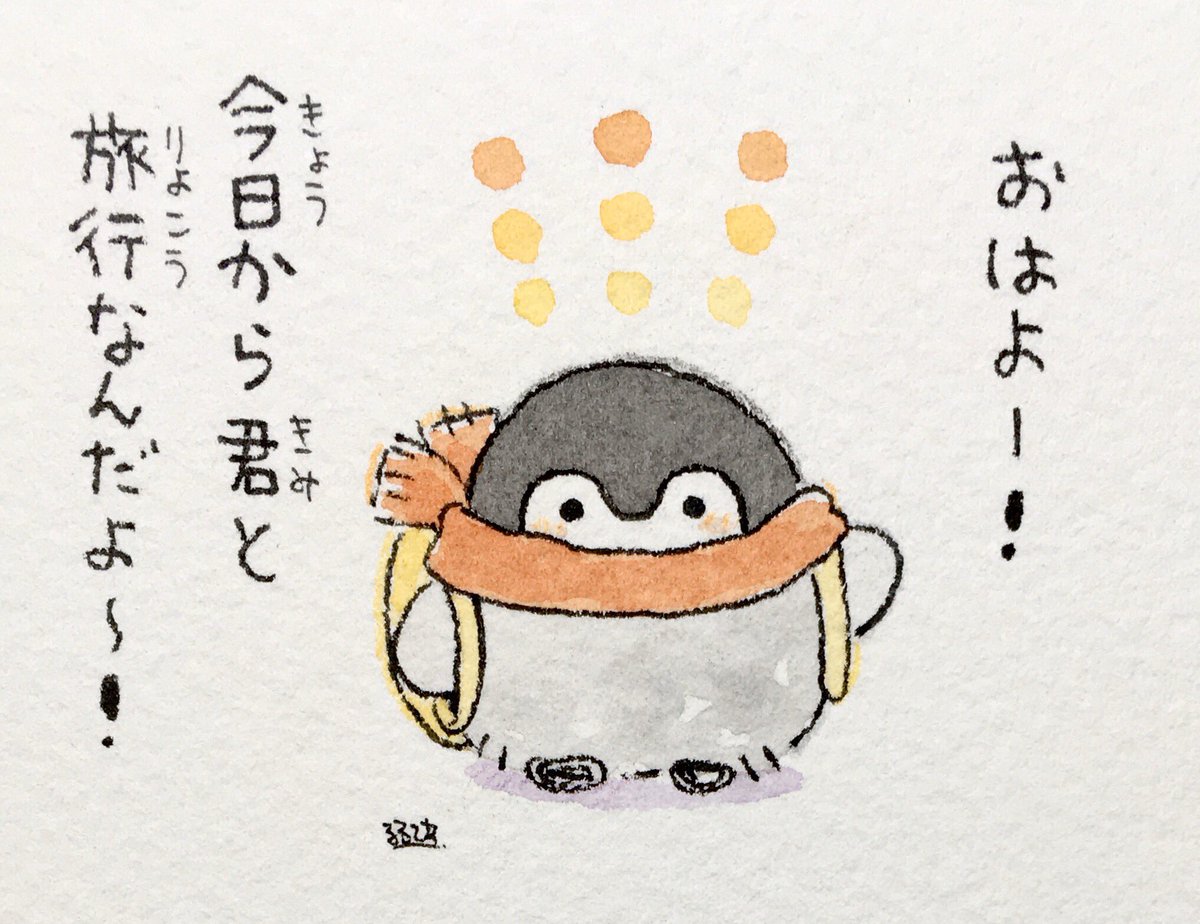 おはよー!
今日から君と
きょう
きみ
旅行なんだよ〜!
りょこう
るるてあ